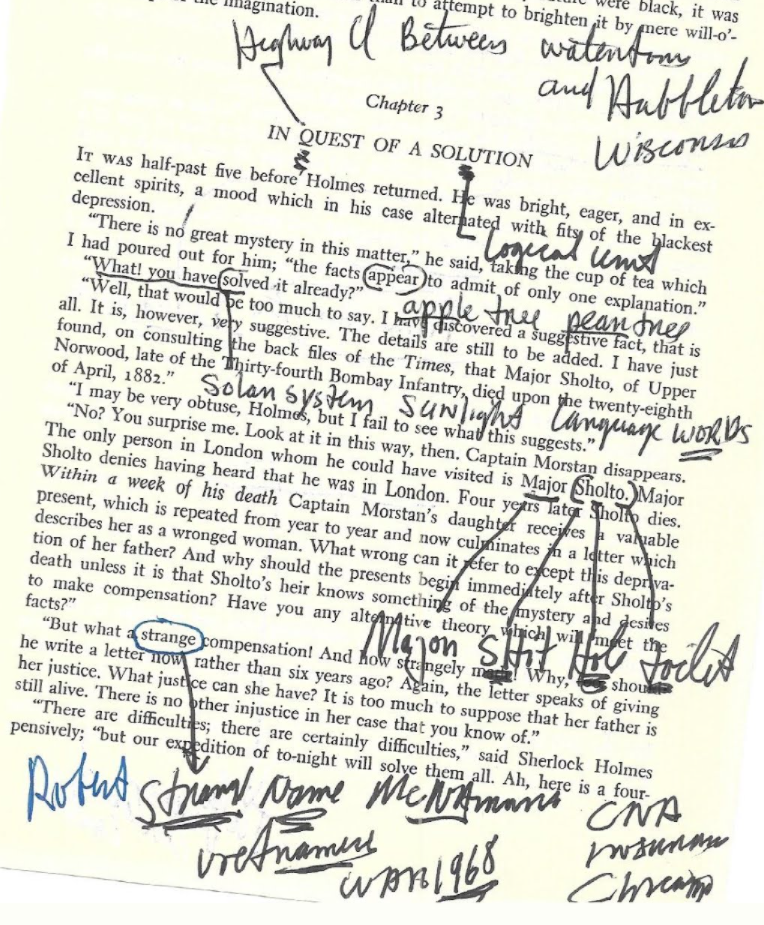 were black, it was
to attempt to brighten it by mere will-o'-
the imagination.
Highway Q Between Watertown
and Hubbleton
Wisconsin
Chapter 3
IN QUEST OF A SOLUTION
IT WAS half-past five before Holmes returned. He was bright, eager, and in ex-
cellent spirits, a mood which in his case alternated with fits of the blackest
depression.
Logical unit
"There is no great mystery in this matter," he said, taking the cup of tea which
I had poured out for him; "the facts appear to admit of only one explanation."
"What! you have solved it already?"
apple tree pear tree
"Well, that would be too much to say. I have discovered a suggestive fact, that is
all. It is, however, very suggestive. The details are still to be added. I have just
found, on consulting the back files of the Times, that Major Sholto, of Upper
Norwood, late of the Thirty-fourth Bombay Infantry, died upon the twenty-eighth
of April, 1882."
Solar System Sunlight Language WORDS
"I may be very obtuse, Holmes, but I fail to see what this suggests."
"No? You surprise me. Look at it in this way, then. Captain Morstan disappears.
The only person in London whom he could have visited is Major Sholto. Major
Sholto denies having heard that he was in London. Four years later Sholto dies.
Within a week of his death Captain Morstan's daughter receives a valuable
present, which is repeated from year to year and now culminates in a letter which
describes her as a wronged woman. What wrong can it refer to except this depriva-
tion of her father? And why should the presents begin immediately after Sholto's
death unless it is that Sholto's heir knows something of the mystery and desires
to make compensation? Have you any alternative theory which will meet the
facts?"
Major SHit Hole toilet
"But what a strange compensation! And how strangely made! Why, should
he write a letter now, rather than six years ago? Again, the letter speaks of giving
her justice. What justice can she have? It is too much to suppose that her father is
still alive. There is no other injustice in her case that you know of."
"There are difficulties; there are certainly difficulties," said Sherlock Holmes
pensively; "but our expedition of to-night will solve them all. Ah, here is a four-
Robert Strange Name McNAmara
CNA
Insurance
Chicago
Vietnamese
WAR 1968